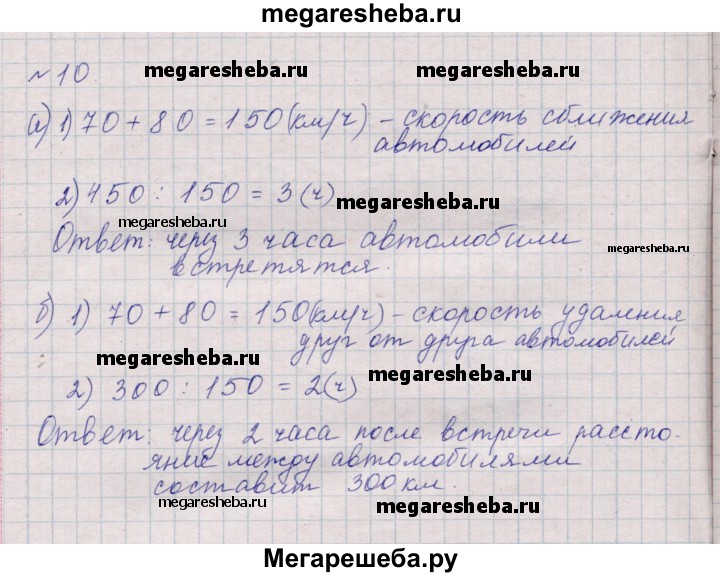 megaresheba.ru
№10
megaresheba.ru megaresheba.ru
а) 1) 70 + 80 = 150 (км/ч) – скорость сближения
автомобилей
2) 450 : 150 = 3 (ч) megaresheba.ru
megaresheba.ru
Ответ: через 3 часа автомобили megaresheba.ru
встретятся.
б) 1) 70 + 80 = 150 (км/ч) – скорость удаления
друг от друга автомобилей
megaresheba.ru megaresheba.ru
2) 300 : 150 = 2 (ч)
Ответ: через 2 часа после встречи рассто-
яние между автомобилями
составит 300 км.
megaresheba.ru megaresheba.ru
Мегарешеба.ру